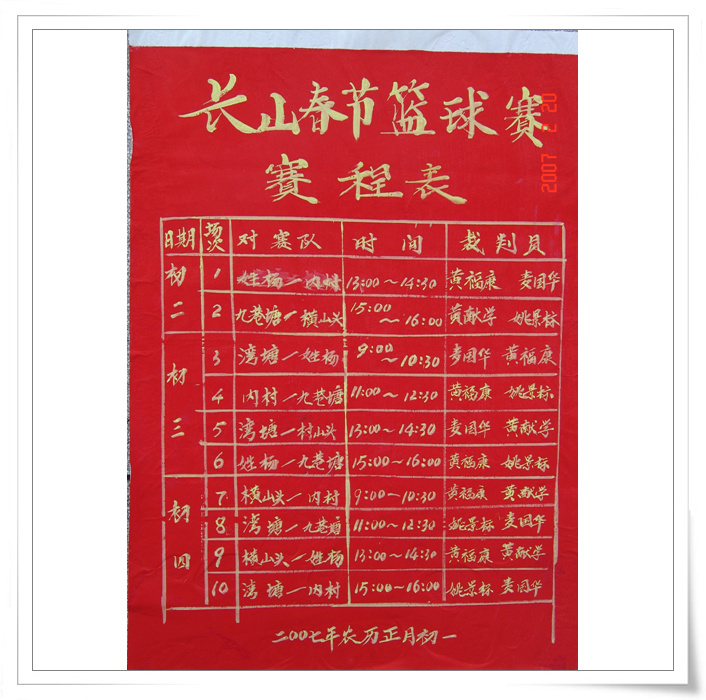 长山春节篮球赛
赛程表
日期 场次 对赛队 时间 裁判员
初二 1 姓杨一内村 13:00～14:30 黄福康 麦国华
2 九巷塘一横山头 15:00～16:00 黄献学 姚景标
初三 3 湾塘一姓杨 9:00～10:30 麦国华 黄福康
4 内村一九巷塘 11:00～12:30 黄福康 姚景标
5 湾塘一村山头 13:00～14:30 麦国华 黄献学
6 姓杨一九巷塘 15:00～16:00 黄福康 姚景标
初四 7 横山头一内村 9:00～10:30 黄福康 黄献学
8 湾塘一九巷塘 11:00～12:30 姚景标 麦国华
9 横山头一姓杨 13:00～14:30 黄福康 黄献学
10 湾塘一内村 15:00～16:00 姚景标 麦国华
二00七年农历正月初一
2007 2 20